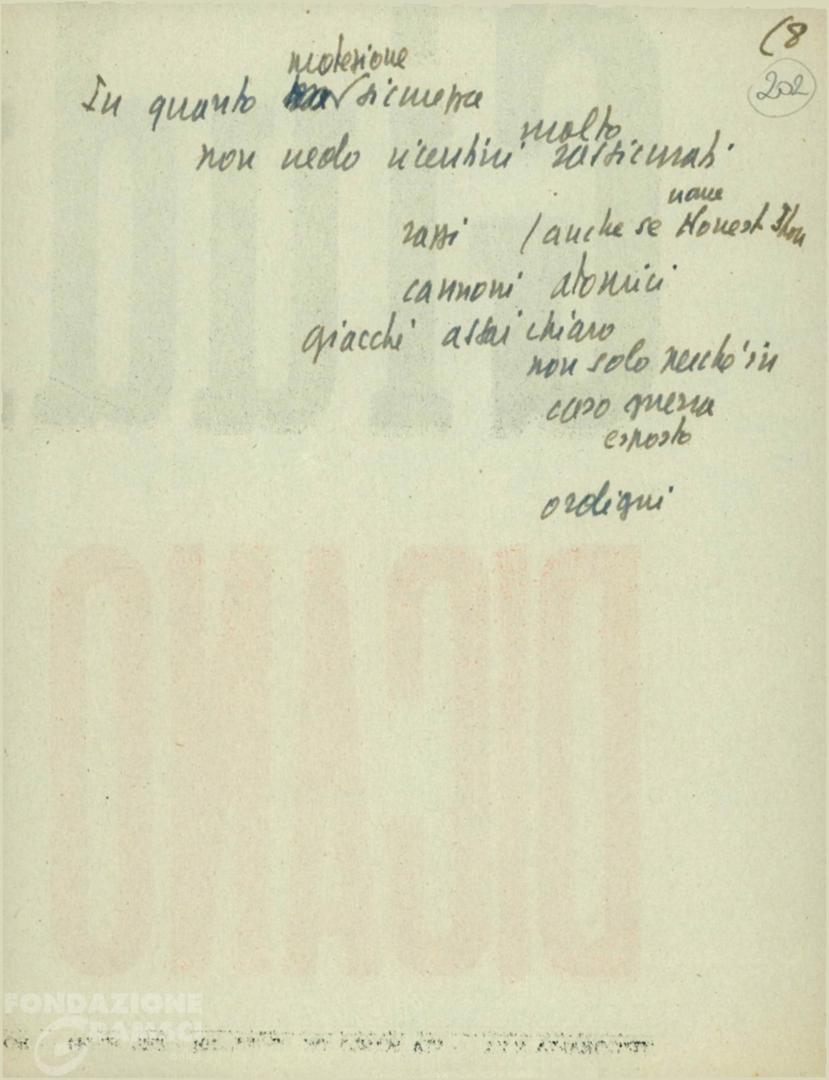 (8
202
protezione
In quanto sicurezza
molto
non vedo vicentini rassicurati
nome
razzi (anche se Honest John
cannoni atomici
giacché assai chiaro
non solo perché in
caso guerra
esposto
ordigni
DICANO
FONDAZIONE
GRAMSCI